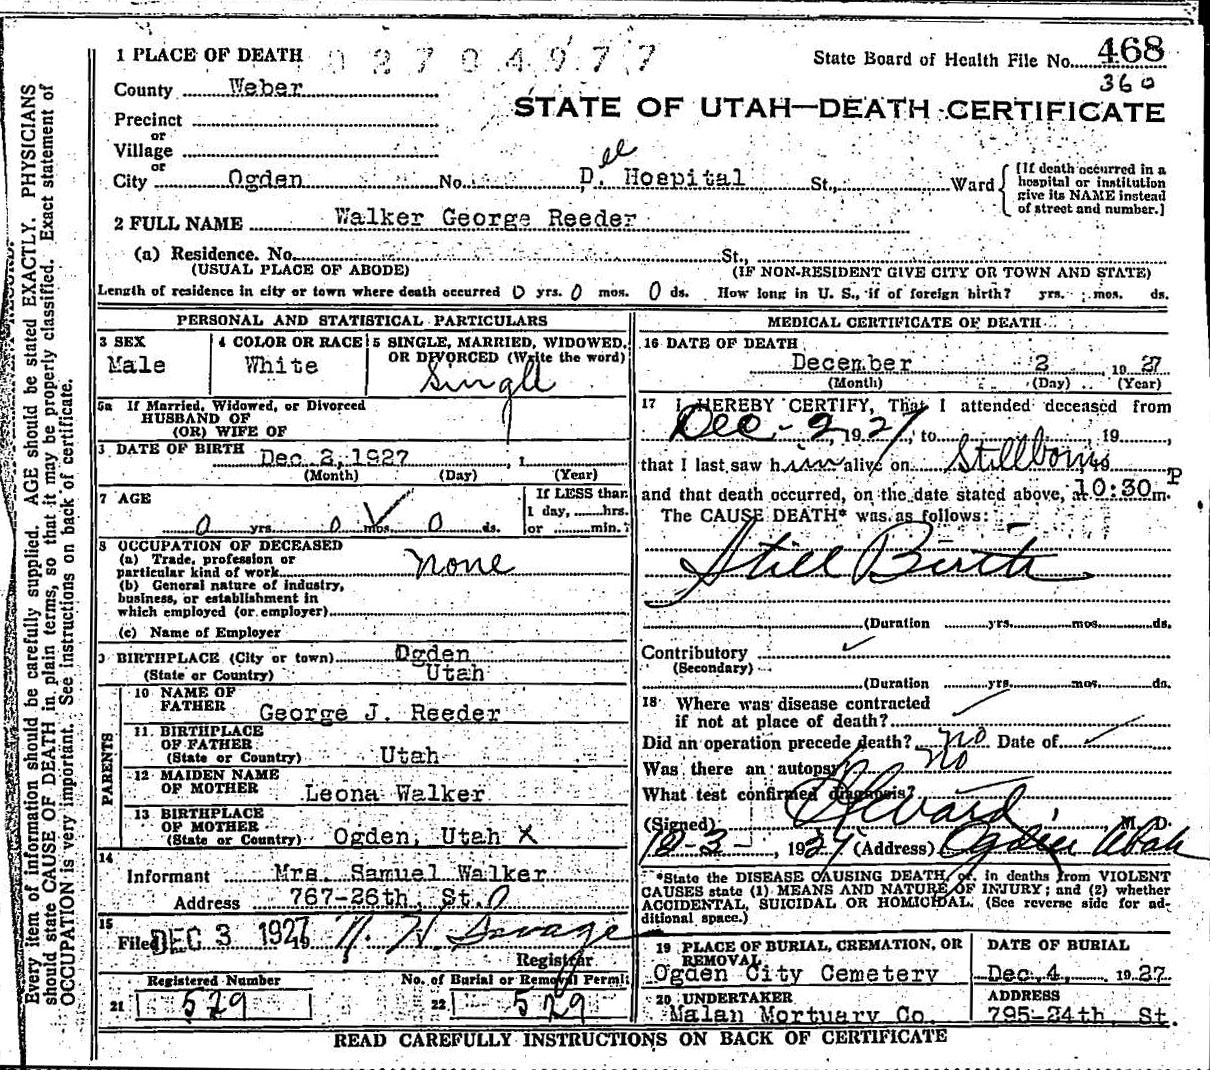 1 PLACE OF DEATH 02704977
State Board of Health File No. 468
360
County Weber
STATE OF UTAH—DEATH CERTIFICATE
Precinct
or
Village
or
City Ogden No. Dee Hospital St., Ward
[If death occurred in a
hospital or institution
give its NAME instead
of street and number.]
2 FULL NAME Walker George Reeder
(a) Residence. No. St.,
(USUAL PLACE OF ABODE) (IF NON-RESIDENT GIVE CITY OR TOWN AND STATE)
Length of residence in city or town where death occurred 0 yrs. 0 mos. 0 ds. How long in U. S., if of foreign birth? yrs. mos. ds.
PERSONAL AND STATISTICAL PARTICULARS
3 SEX 4 COLOR OR RACE 5 SINGLE, MARRIED, WIDOWED,
OR DIVORCED (Write the word)
Male White Single
5a If Married, Widowed, or Divorced
HUSBAND OF
(OR) WIFE OF
DATE OF BIRTH Dec 2, 1927, 1
(Month) (Day) (Year)
7 AGE If LESS than
1 day, hrs.
0 yrs. 0 mos. 0 ds. or min.
8 OCCUPATION OF DECEASED
(a) Trade, profession or
particular kind of work none
(b) General nature of industry,
business, or establishment in
which employed (or employer)
(c) Name of Employer
9 BIRTHPLACE (City or town) Ogden
(State or Country) Utah
PARENTS
10 NAME OF
FATHER George J. Reeder
11 BIRTHPLACE
OF FATHER
(State or Country) Utah
12 MAIDEN NAME
OF MOTHER Leona Walker
13 BIRTHPLACE
OF MOTHER
(State or Country) Ogden, Utah X
14
Informant Mrs. Samuel Walker
Address 767-26th St.
15
Filed DEC 3 1927 Savage
Registrar
Registered Number No. of Burial or Removal Permit
21 579 22 579
MEDICAL CERTIFICATE OF DEATH
16 DATE OF DEATH
December 2 1927
(Month) (Day) (Year)
17 I HEREBY CERTIFY, That I attended deceased from
Dec - 2, 1927, to , 19 ,
that I last saw him alive on Stillborn, 19
and that death occurred, on the date stated above, at 10:30 P m.
The CAUSE DEATH* was as follows:
Still Birth
(Duration yrs. mos. ds.
Contributory
(Secondary)
(Duration yrs. mos. ds.
18 Where was disease contracted
if not at place of death?
Did an operation precede death? no Date of
Was there an autopsy no
What test confirmed diagnosis?
(Signed) M. D.
12-3-, 1927 (Address) Ogden Utah
*State the DISEASE CAUSING DEATH, or, in deaths from VIOLENT
CAUSES state (1) MEANS AND NATURE OF INJURY; and (2) whether
ACCIDENTAL, SUICIDAL OR HOMICIDAL. (See reverse side for ad-
ditional space.)
19 PLACE OF BURIAL, CREMATION, OR
REMOVAL
DATE OF BURIAL
Ogden City Cemetery Dec. 4, 1927
20 UNDERTAKER ADDRESS
Malan Mortuary Co. 795-24th St.
READ CAREFULLY INSTRUCTIONS ON BACK OF CERTIFICATE
Every item of information should be carefully supplied. AGE should be stated EXACTLY. PHYSICIANS
should state CAUSE OF DEATH in plain terms, so that it may be properly classified. Exact statement of
OCCUPATION is very important. See instructions on back of certificate.